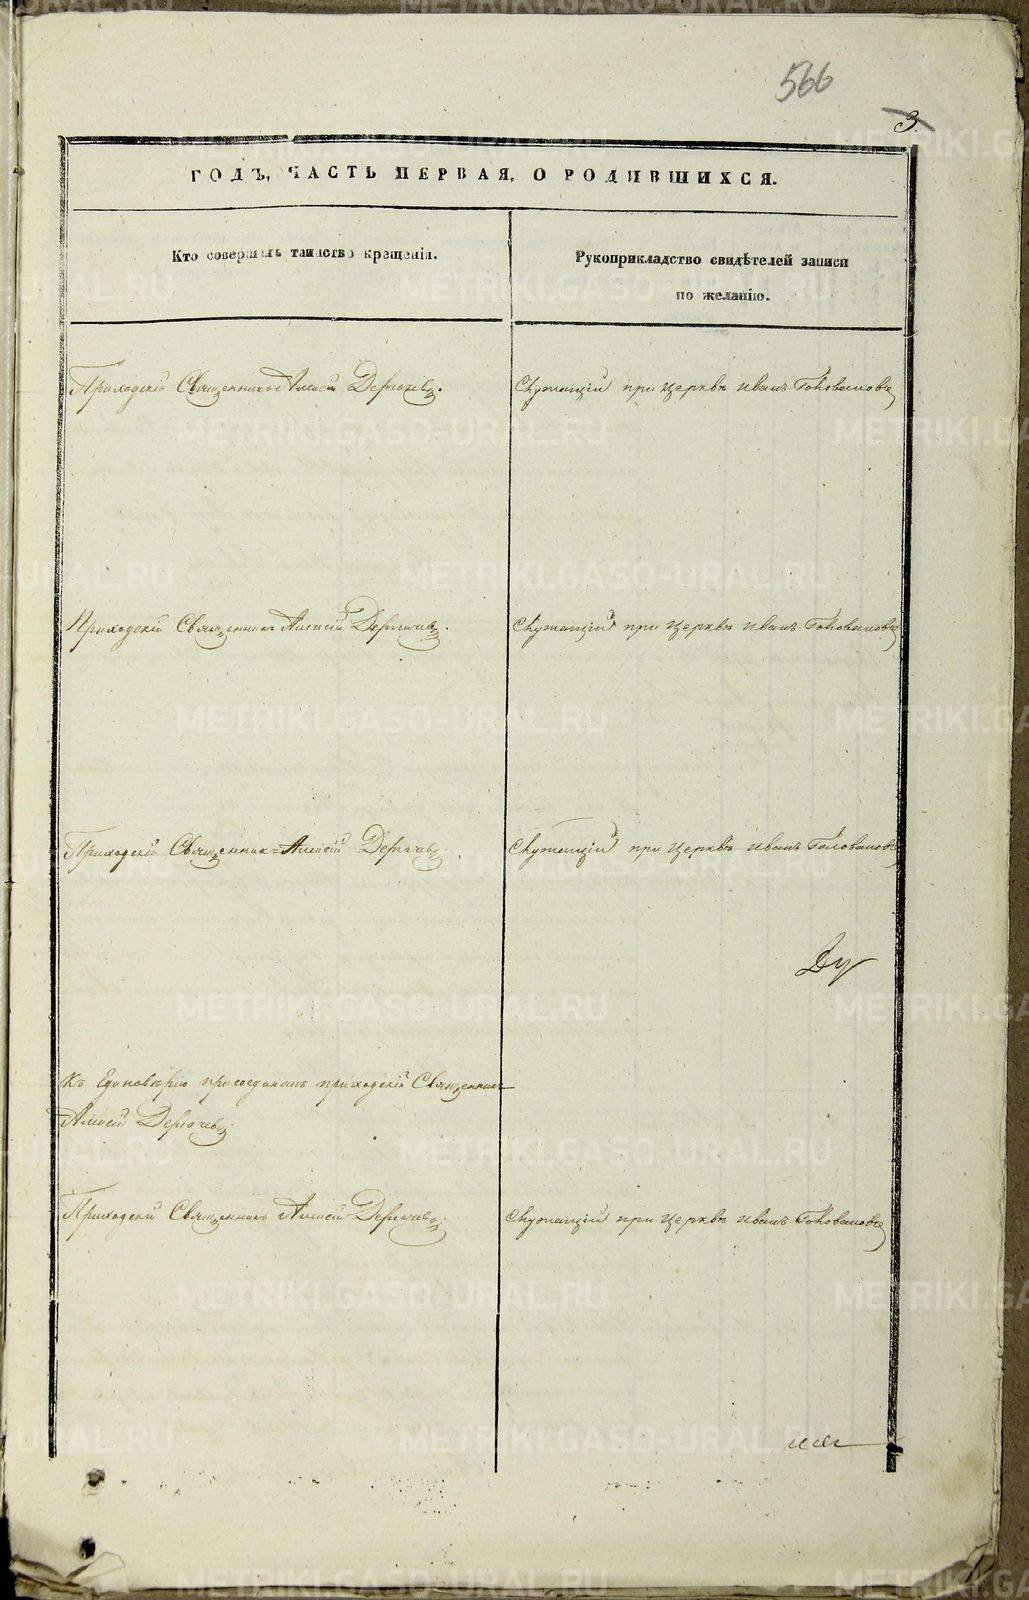 566
3.
ГОДЪ, ЧАСТЬ ПЕРВАЯ, О РОДИВШИХСЯ.
Кто совершилъ таинство крещенія.
Рукоприкладство свидѣтелей записи
по желанію.
Приходскій Священникъ Алексій Дергачевъ.
Служащій при церквѣ Иванъ Головановъ
Приходскій Священникъ Алексій Дергачевъ.
Служащій при Церквѣ Иванъ Головановъ
Приходскій Священникъ Алексій Дергачевъ.
Служащій при Церквѣ Иванъ Головановъ
Къ Единовѣрію присоединилъ приходскій Священникъ
Алексій Дергачевъ
Приходскій Священникъ Алексій Дергачевъ.
Служащій при Церквѣ Иванъ Головановъ
METRIKI.GASO-URAL.RU